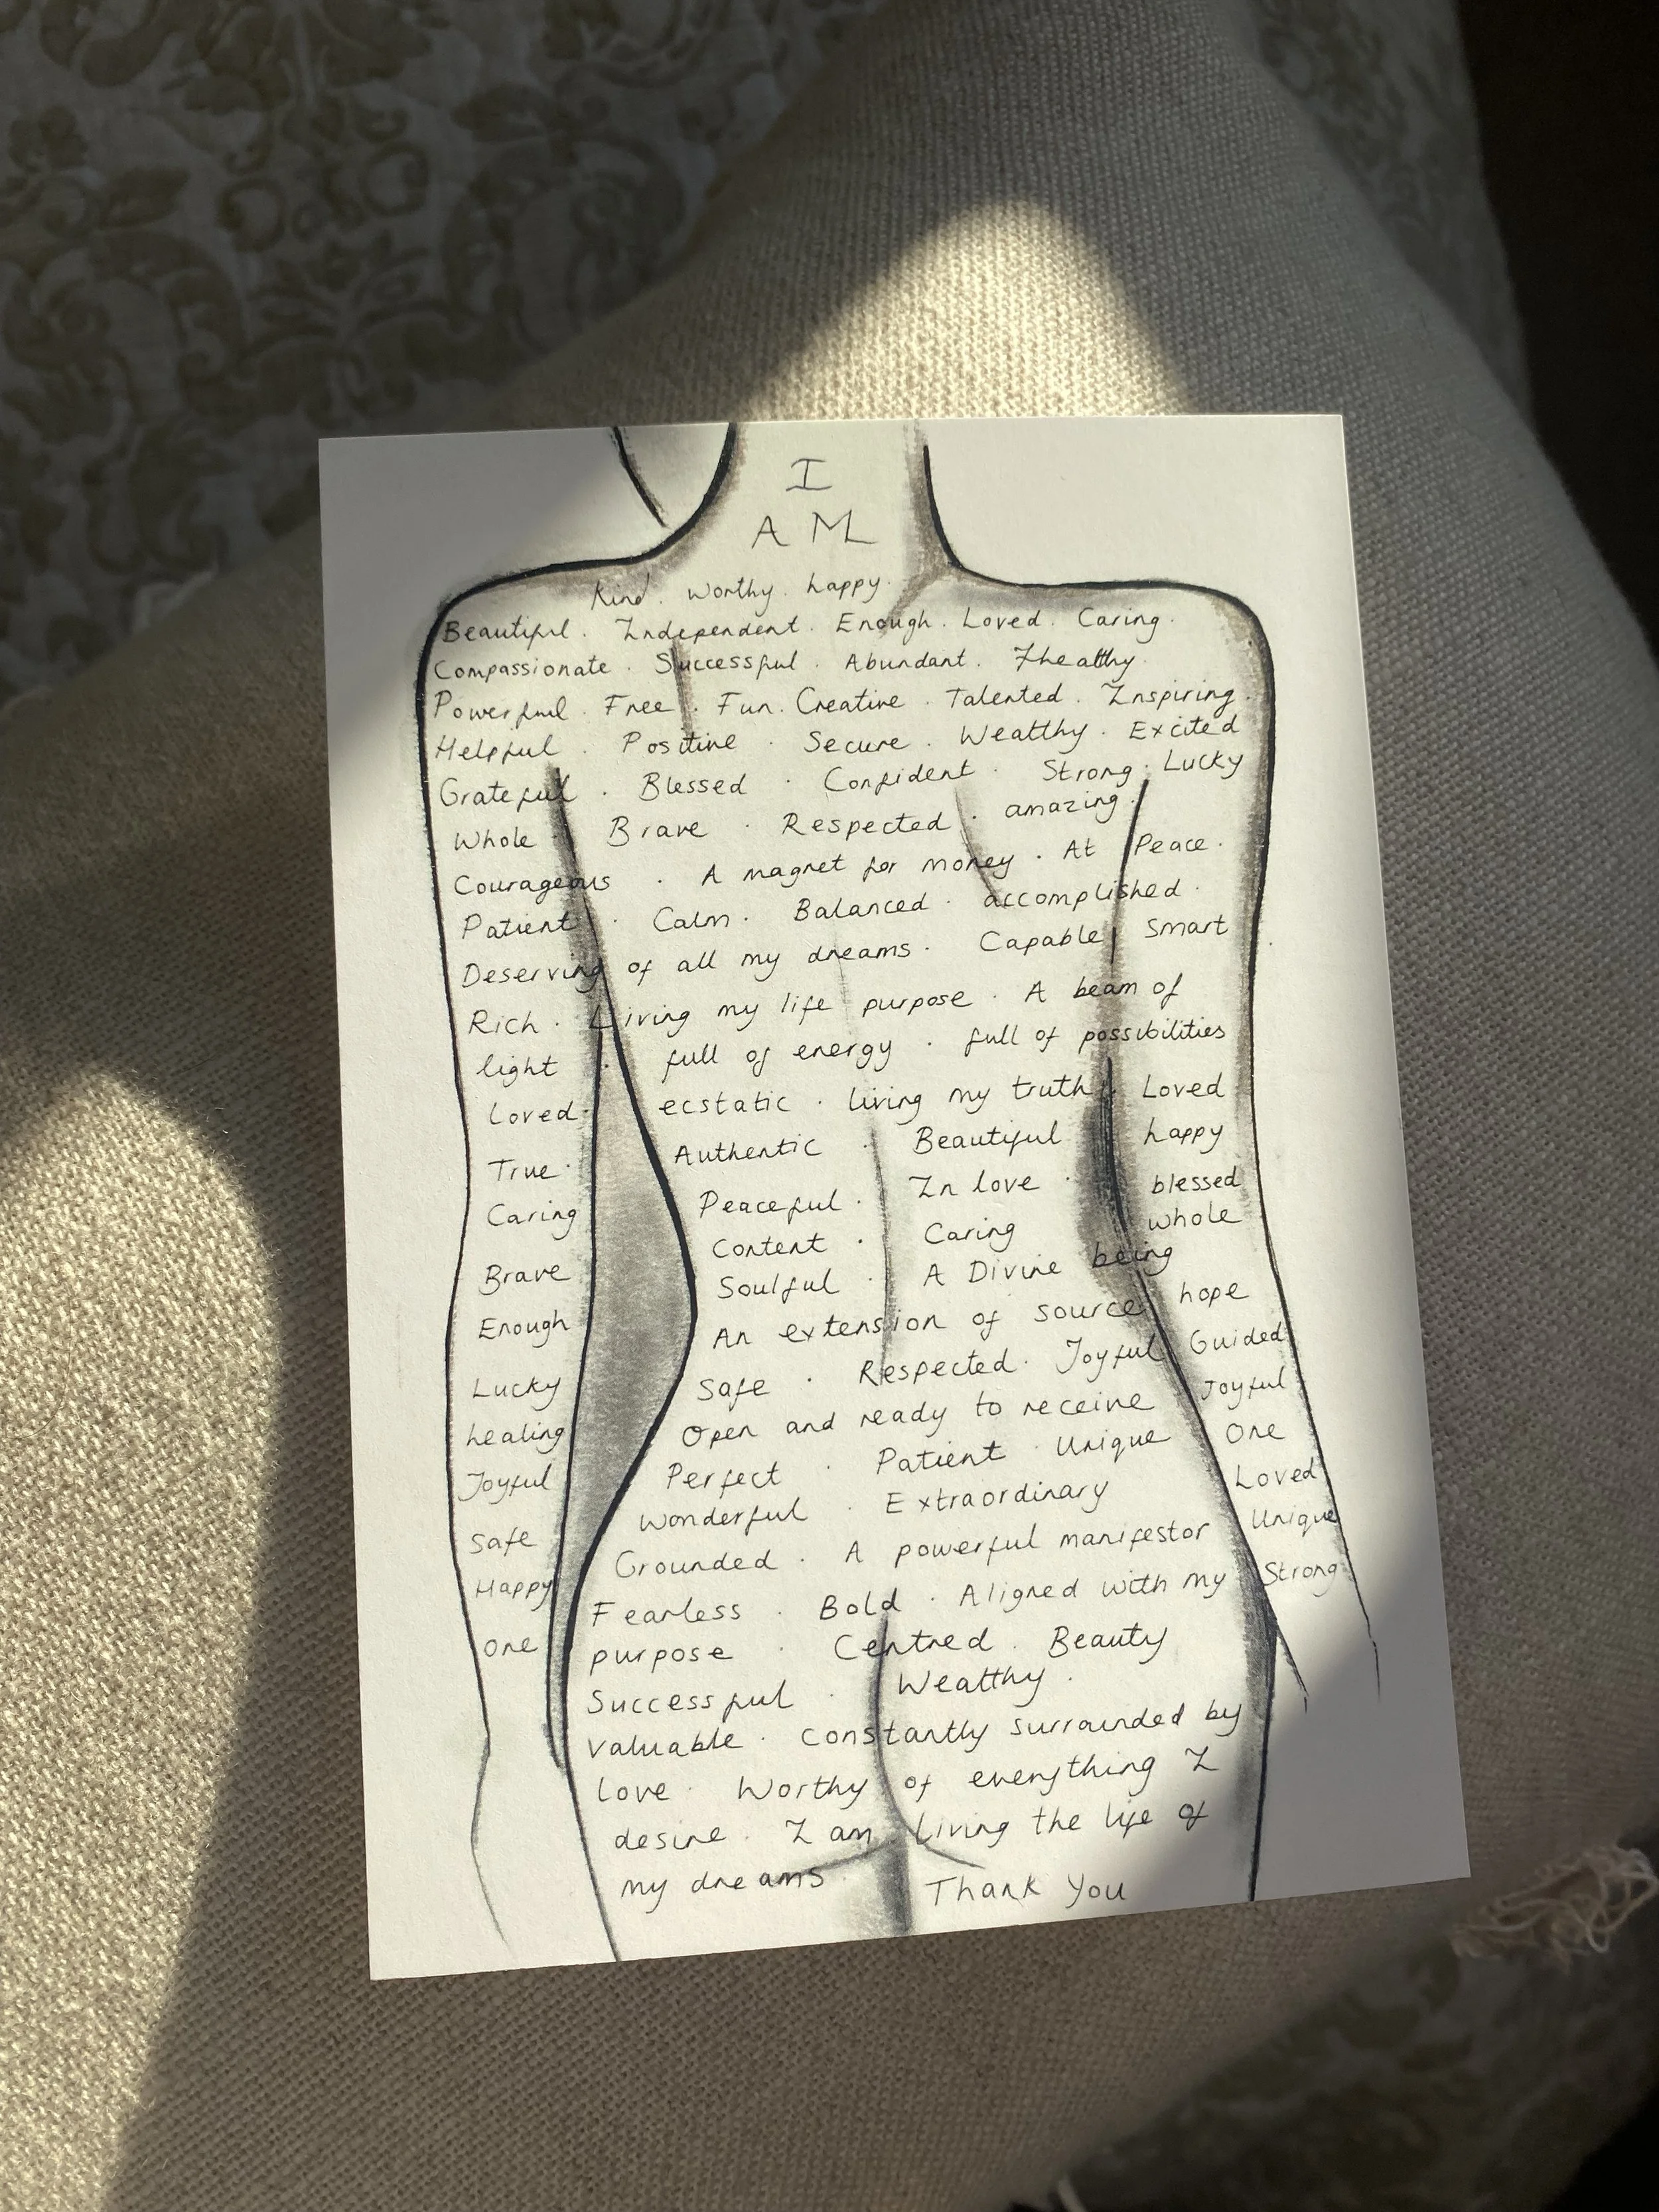 I
AM
Kind. Worthy. happy.
Beautiful. Independent. Enough. Loved. Caring.
Compassionate. Successful. Abundant. Healthy.
Powerful. Free. Fun. Creative. Talented. Inspiring.
Helpful. Positive. Secure. Wealthy. Excited
Grateful. Blessed. Confident. Strong. Lucky
Whole. Brave. Respected. amazing.
Courageous. A magnet for money. At Peace.
Patient. Calm. Balanced. accomplished.
Deserving of all my dreams. Capable. Smart
Rich. Living my life purpose. A beam of
light. full of energy. full of possibilities
Loved. ecstatic. living my truth. Loved
True. Authentic. Beautiful happy
Caring Peaceful. In love. blessed
Content. Caring whole
Brave Soulful. A Divine being
Enough An extension of source hope
Lucky Safe. Respected. Joyful Guided
healing Open and ready to receive Joyful
Joyful Perfect. Patient. Unique One
Safe Wonderful. Extraordinary Loved
Happy Grounded. A powerful manifestor Unique
One Fearless. Bold. Aligned with my Strong.
purpose. Centred. Beauty
Successful. Wealthy.
Valuable. Constantly surrounded by
love. Worthy of everything I
desire. I am living the life of
my dreams. Thank You